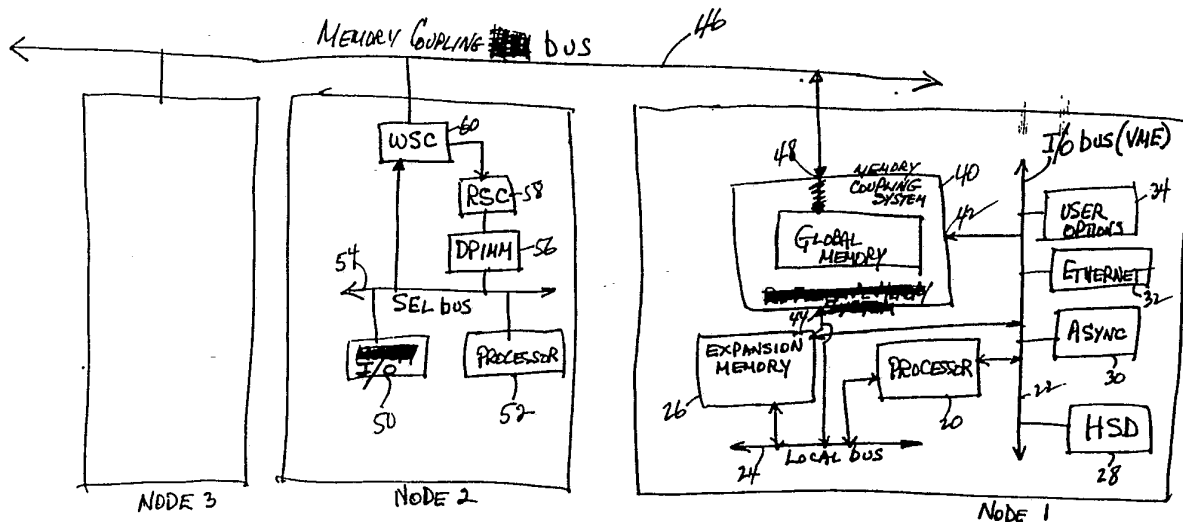 MEMORY COUPLING bus
46
NODE 3
WSC
60
RSC
58
DPIMM
56
54
SEL bus
I/O
50
PROCESSOR
52
NODE 2
48
MEMORY
COUPLING
SYSTEM
40
GLOBAL
MEMORY
42
44
EXPANSION
MEMORY
26
PROCESSOR
20
24
LOCAL bus
I/O bus (VME)
USER
OPTIONS
34
ETHERNET
32
ASYNC
30
22
HSD
28
NODE 1